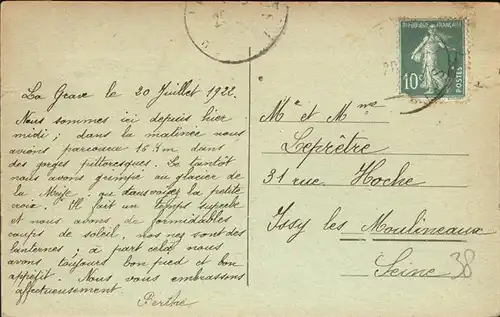 La Grave le 20 Juillet 1922.
Nous sommes ici depuis hier
midi ; dans la matinée nous
avions parcouru 16 km dans
des gorges pittoresques. Ce tantôt
nous avons grimpé au glacier de
la Meije, ou dans la petite
croix. Il fait un temps superbe
et nous avons de formidables
coups de soleil, nos nez sont des
lanternes ; à part cela nous
avons toujours bon pied et bon
appétit. Nous vous embrassons
affectueusement
Berthe
RÉPUBLIQUE FRANÇAISE
10c
POSTES
Mr et Mme
Leprêtre
31 rue Hoche
Issy les Moulineaux
Seine
38